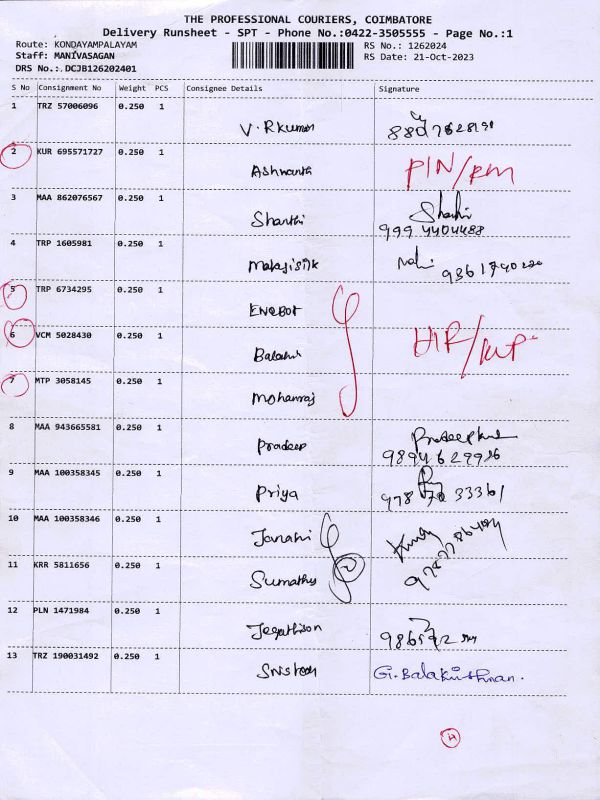 THE PROFESSIONAL COURIERS, COIMBATORE
Delivery Runsheet - SPT - Phone No.:0422-3505555 - Page No.:1
Route: KONDAYAMPALAYAM RS No.: 1262024
Staff: MANIVASAGAN RS Date: 21-Oct-2023
DRS No.:.DCJB126202401
S No Consignment No Weight PCS Consignee Details Signature
1 TRZ 57006096 0.250 1 V.RKumar
2 KUR 695571727 0.250 1 Ashwanth PIN/RM
3 MAA 862076567 0.250 1 Shanthi Shanthi
999 4404488
4 TRP 1605981 0.250 1
5 TRP 6734295 0.250 1
6 VCM 5028430 0.250 1
7 MTP 3058145 0.250 1 Mohanraj
8 MAA 943665581 0.250 1 Pradeep
9894629926
9 MAA 100358345 0.250 1 Priya
10 MAA 100358346 0.250 1 Janaki
11 KRR 5811656 0.250 1
12 PLN 1471984 0.250 1
13 TRZ 190031492 0.250 1 G.Balakrishnan.
H